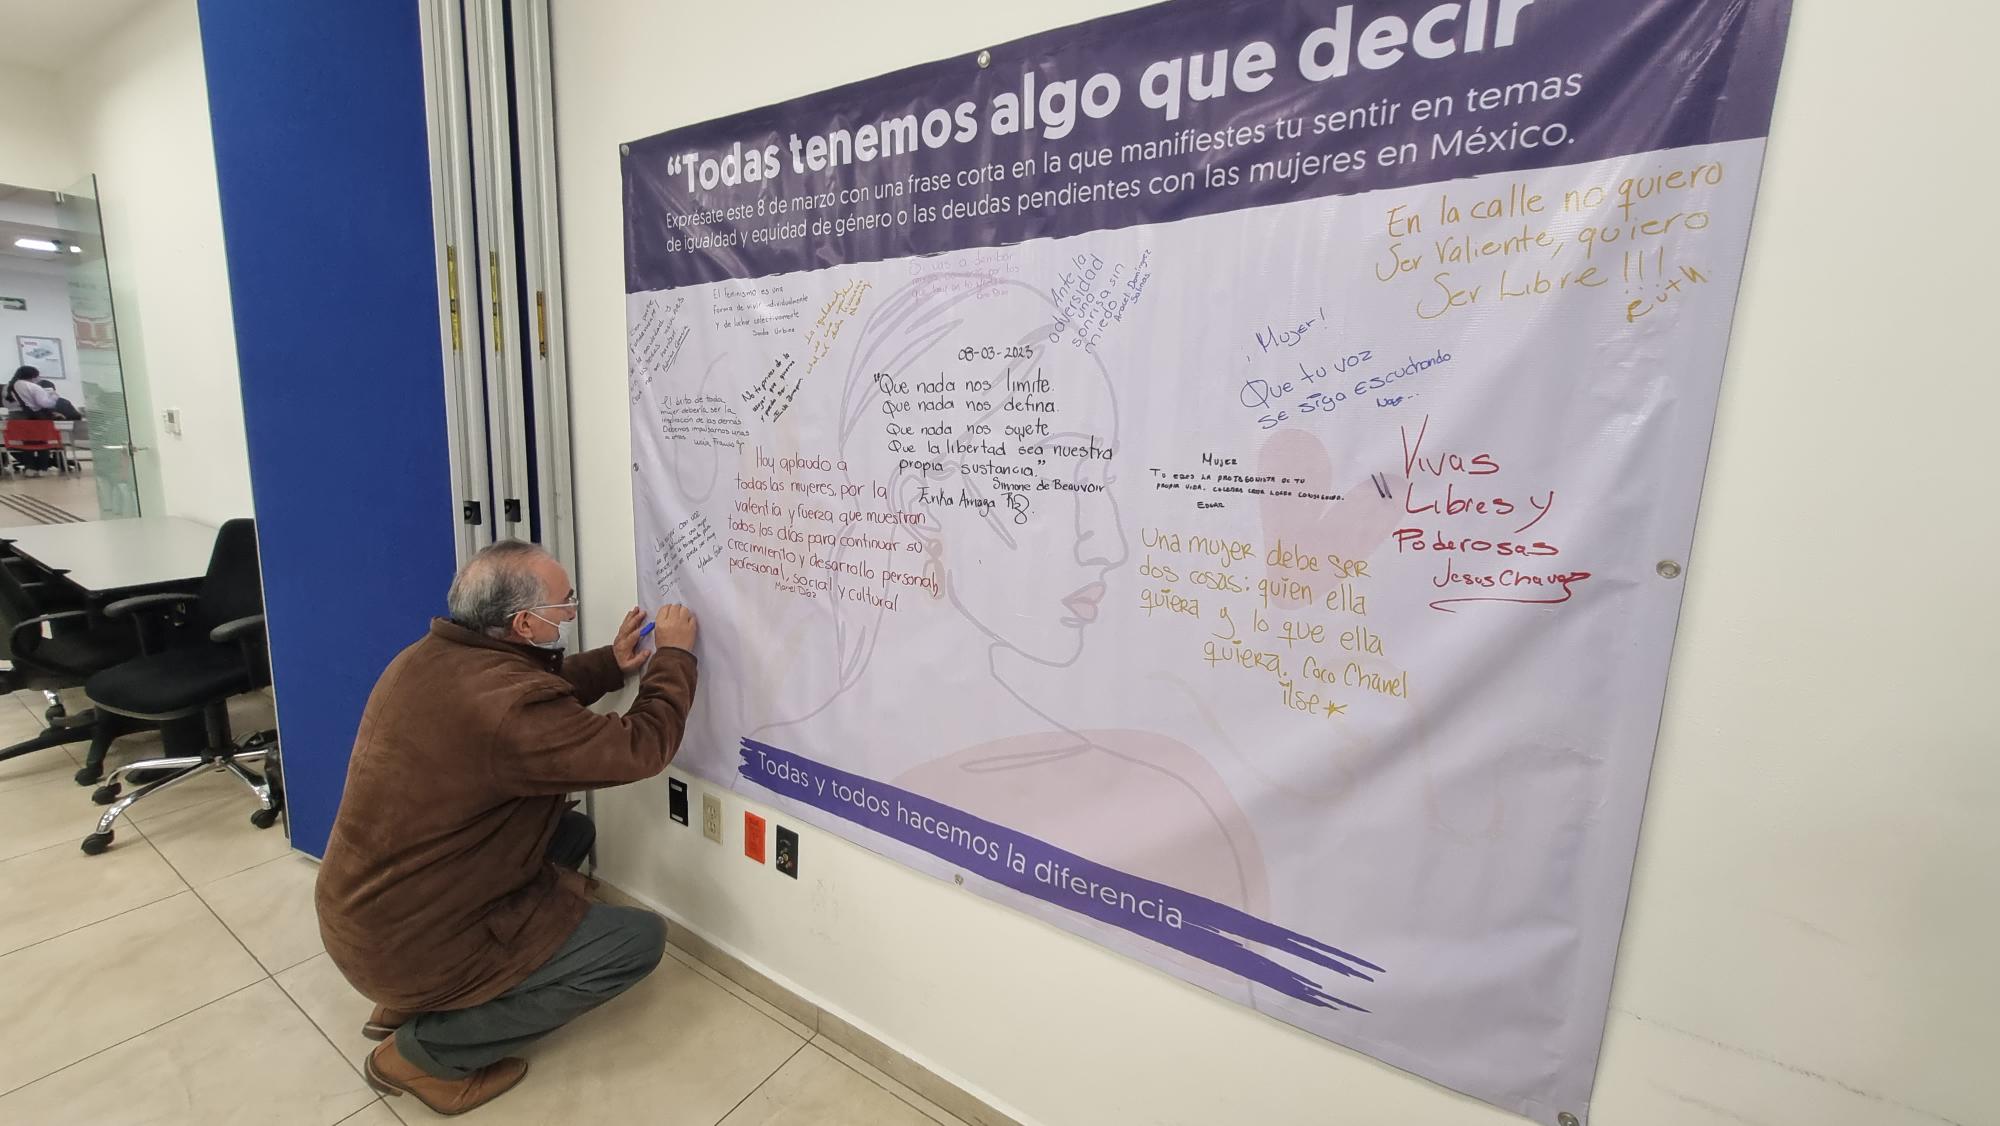 “Todas tenemos algo que decir
Exprésate este 8 de marzo con una frase corta en la que manifiestes tu sentir en temas
de igualdad y equidad de género o las deudas pendientes con las mujeres en México.
En la calle no quiero
Ser Valiente, quiero
Ser Libre !!!
Ruth
El feminismo es una
forma de vivir individualmente
y de luchar colectivamente
Ante la
adversidad
una
sonrisa sin
miedo
Araceli Domínguez
Salinas
08-03-2023
"Que nada nos limite.
Que nada nos defina.
Que nada nos sujete.
Que la libertad sea nuestra
propia sustancia."
Simone de Beauvoir
Erika Arriaga
¡Mujer!
Que tu voz
se siga escuchando
El éxito de toda
mujer debería ser la
inspiración de las demás
Debemos impulsarnos unas
a otras
Hoy aplaudo a
todas las mujeres, por la
valentía y fuerza que muestran
todos los días para continuar su
crecimiento y desarrollo personal,
profesional, social y cultural
Díaz
Mujer
Tu eres la protagonista de tu
propia vida.
Edgar
"Vivas
Libres y
Poderosas
Jesus Chavez
Una mujer debe ser
dos cosas: quien ella
quiera y lo que ella
quiera. Coco Chanel
ilse
Todas y todos hacemos la diferencia